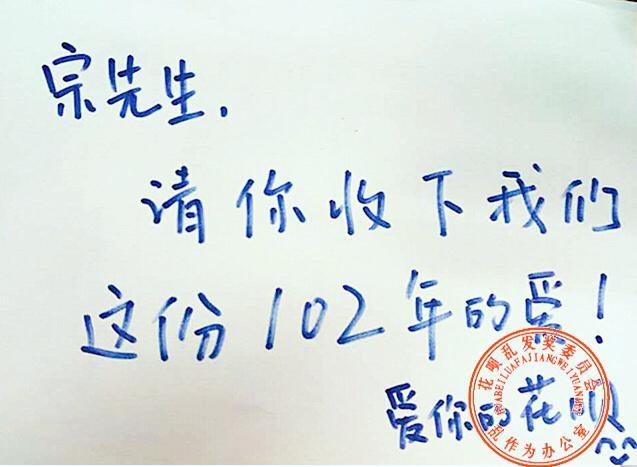 宗先生,
请你收下我们
这份102年的爱!
爱你的花呗
花呗乱发奖委员会
HUABEILUAFAJIANGWEIYUANHUI
乱作为办公室